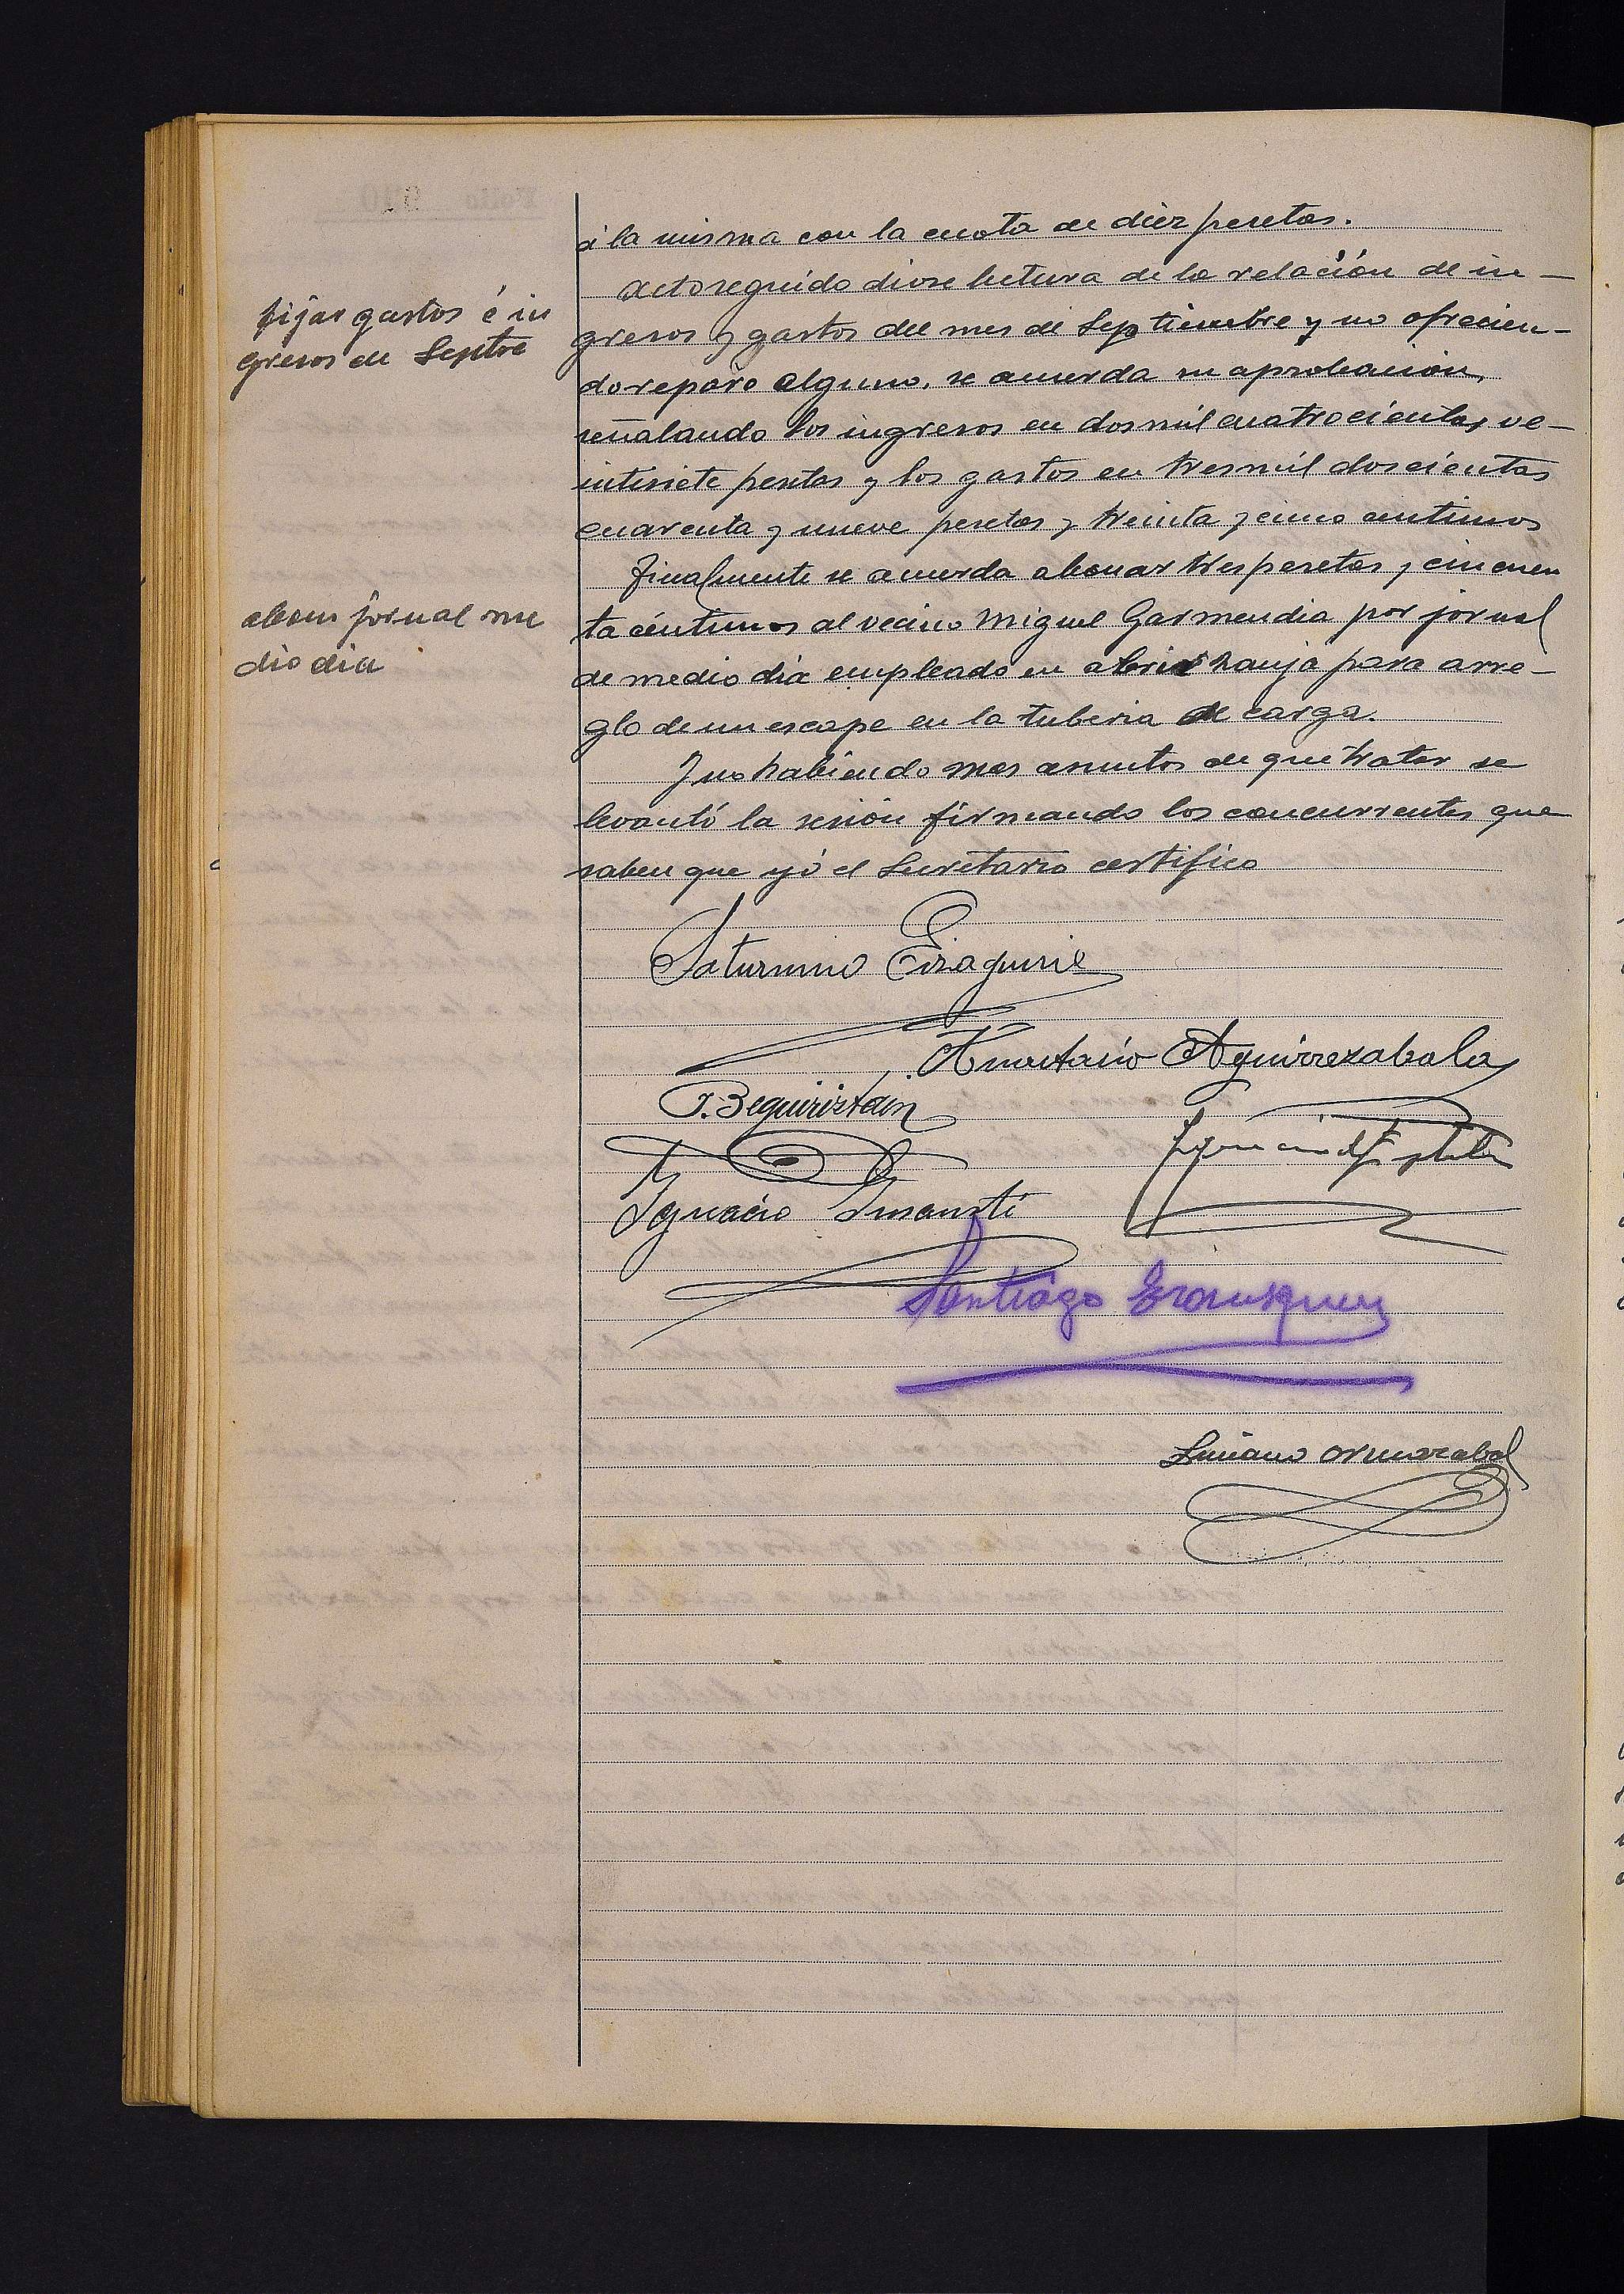 á la misma con la cuota de diez pesetas.
fijar gastos é in
gresos de Septbre
Acto seguido diose lectura de la relación de in-
gresos y gastos del mes de Septiembre y no ofrecien-
do reparo alguno, se acuerda su aprobación,
señalando los ingresos en dos mil cuatrocientas ve-
intisiete pesetas y los gastos en tres mil doscientas
cuarenta y nueve pesetas y treinta y cinco centimos
abono jornal me
dio dia
Finalmente se acuerda abonar tres pesetas y cincuen
ta céntimos al vecino Miguel Garmendia por jornal
de medio día empleado en abrir zanja para arre-
glo de un escape en la tuberia de carga.
Y no habiendo mas asuntos de que tratar se
levantó la sesión firmando los concurrentes que
saben que yó el Secretario certifico
Saturnino Eizaguirre
Anastasio Aguirrezabala
J. Beguiristain
Ignacio
Ignacio Insausti
Santiago
Luciano Ormazabal